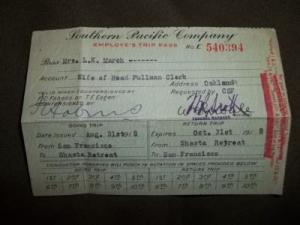 Southern Pacific Company
EMPLOYE'S TRIP PASS
No E 540394
Pass Mrs. L.K. March -------
Account Wife of Head Pullman Clerk
Address Oakland
VALID WHEN COUNTERSIGNED BY
Requested by CSF
COUNTERSIGNED BY
GOING TRIP
RETURN TRIP
Date Issued Aug. 31st
Expires Oct. 31st
From San Francisco
From Shasta Retreat
To Shasta Retreat
To San Francisco
CONDUCTOR HONORING WILL PUNCH IN ROTATION IN SPACES PROVIDED BELOW
GOING TRIP
RETURN TRIP
1st 2nd 3rd 4th 5th 1st 2nd 3rd 4th 5th